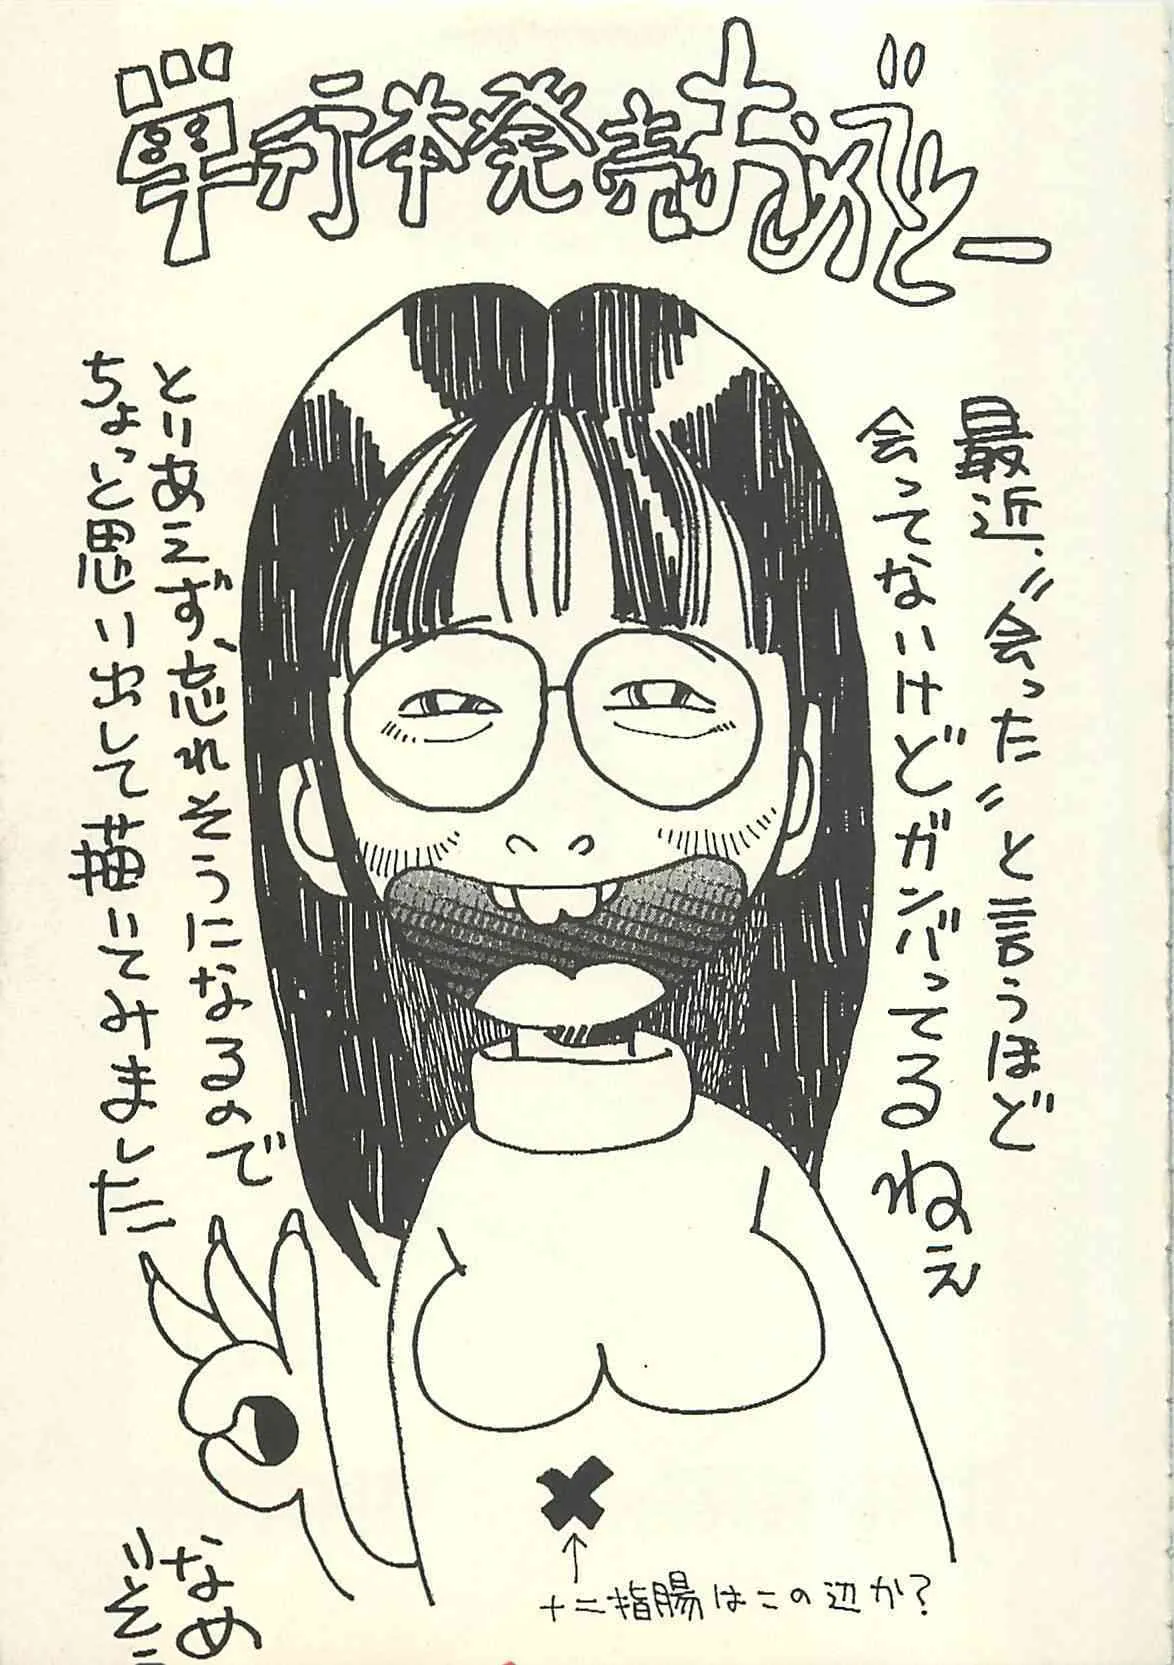 單行本発売おめでとー
最近、"会った"と言うほど
会ってないけどガンバってるねぇ
とりあえず、忘れそうになるので
ちょっと思い出して描いてみました
十二指腸はこの辺か?
なめ